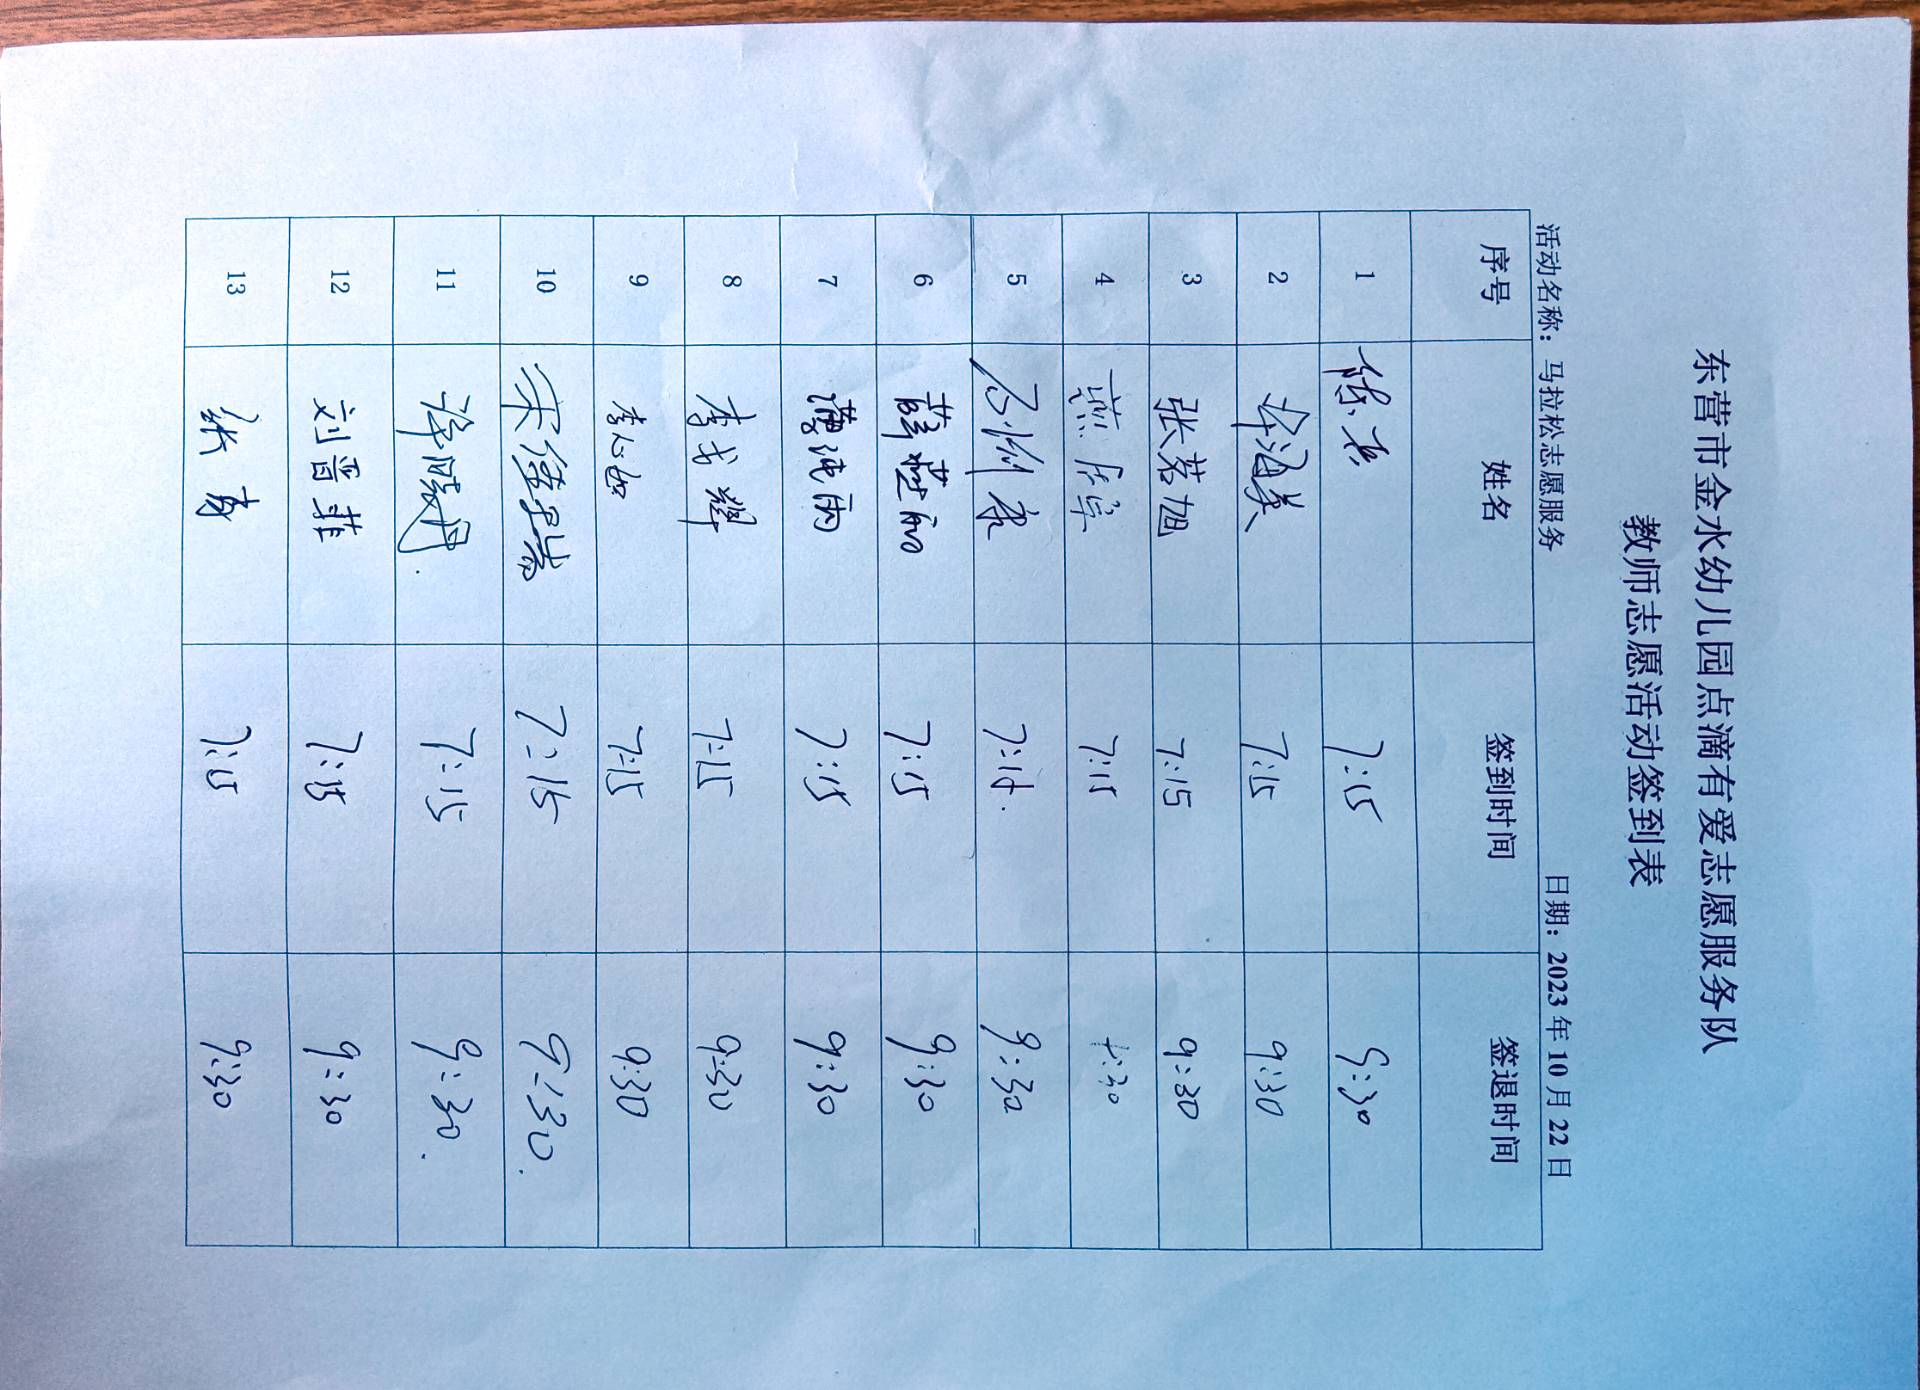 东营市金水幼儿园点滴有爱志愿服务队
教师志愿活动签到表
活动名称：马拉松志愿服务 日期：2023年10月22日
序号 姓名 签到时间 签退时间
1 7:15 9:30
2 7:15 9:30
3 张茗旭 7:15 9:30
4 7:15
5 9:30
6 薛楚 7:15 9:30
7 7:15 9:30
8 李 7:15 9:30
9 李心如 7:15 9:30
10 宋 7:15 9:30.
11 晓丹 7:15 9:30.
12 刘晋菲 7:15 9:30
13 7:15 9:30